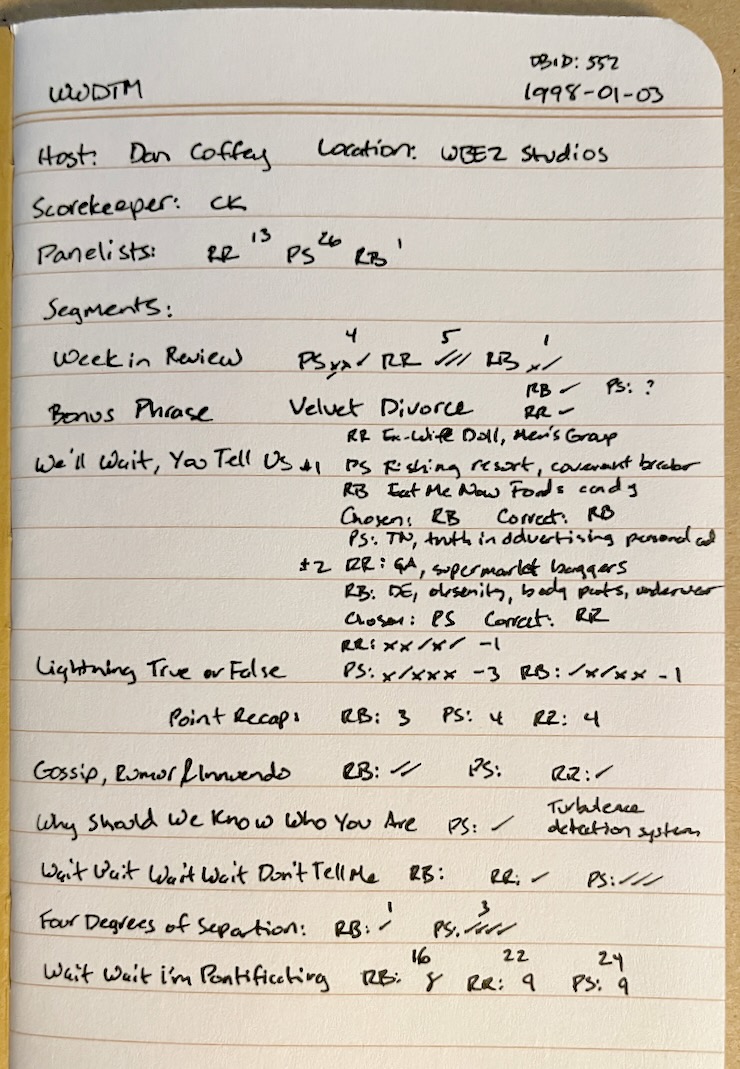 DBID: 552
WWDTM 1998-01-03
Host: Dan Coffey Location: WBEZ Studios
Scorekeeper: CK
Panelists: RR 13 PS 26 RB 1
Segments:
Week in Review PS xx✓ 4 RR ✓✓✓ 5 RB x✓ 1
RB ✓ PS: ?
Bonus Phrase Velvet Divorce RR ✓
RR Ex-Wife Doll, Men's Group
We'll Wait, You Tell Us #1 PS Fishing resort, covenant breaker
RB Eat Me Now Foods candy
Chosen: RB Correct: RB
PS: TN, truth in advertising personal ad
#2 RR: GA, supermarket baggers
RB: DE, obsenity, body parts, underwear
Chosen: PS Correct: RR
RR: xx✓x✓ -1
Lightning True or False PS: x✓xxx -3 RB: ✓x✓xx -1
Point Recap: RB: 3 PS: 4 RR: 4
Gossip, Rumor & Innuendo RB: ✓✓ PS: RR: ✓
Why Should We Know Who You Are PS: ✓ Turbulence
detection system
Wait Wait Wait Wait Don't Tell Me RB: RR: ✓ PS: ✓✓✓
Four Degrees of Separtion: RB: ✓ 1 PS: ✓✓✓✓ 3
Wait Wait I'm Pontificating RB: 8 16 RR: 9 22 PS: 9 24